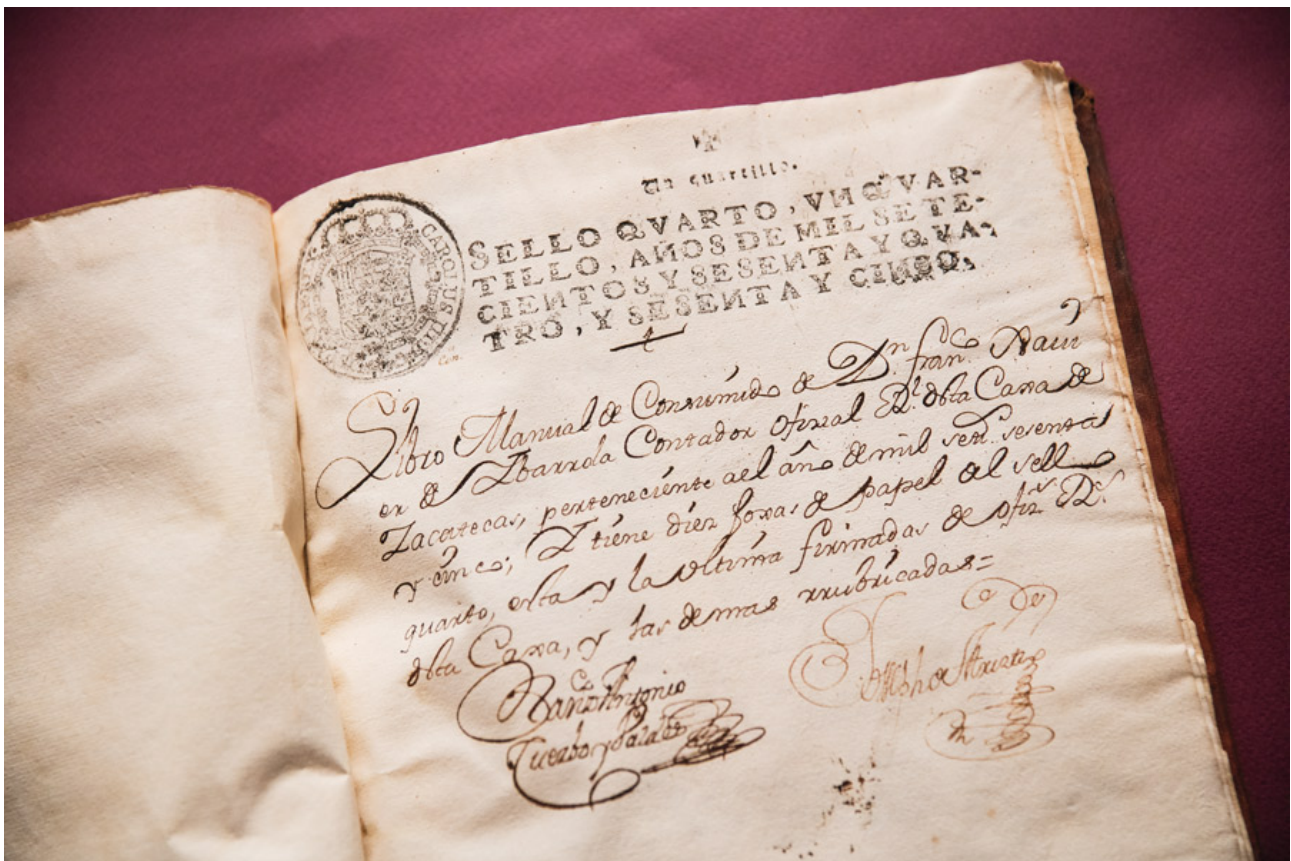 Un quartillo.
SELLO QVARTO, VN QVAR-
TILLO, AÑOS DE MIL SETE-
CIENTOS Y SESENTA Y QVA-
TRO, Y SESENTA Y CINCO.
CAROLUS III
Libro Manual de Consumido de Dn. franco. Xavi
er de Ibarrola Contador ofizial Rl. desta Caxa de
Zacatecas, perteneciente a el año de mil sets. sesenta
y cinco; Y tiene diez foxas de papel del sello
quarto, esta y la ultima firmadas de ofizs. Rs.
desta Caxa, y las demas rrubricadas=
Antonio